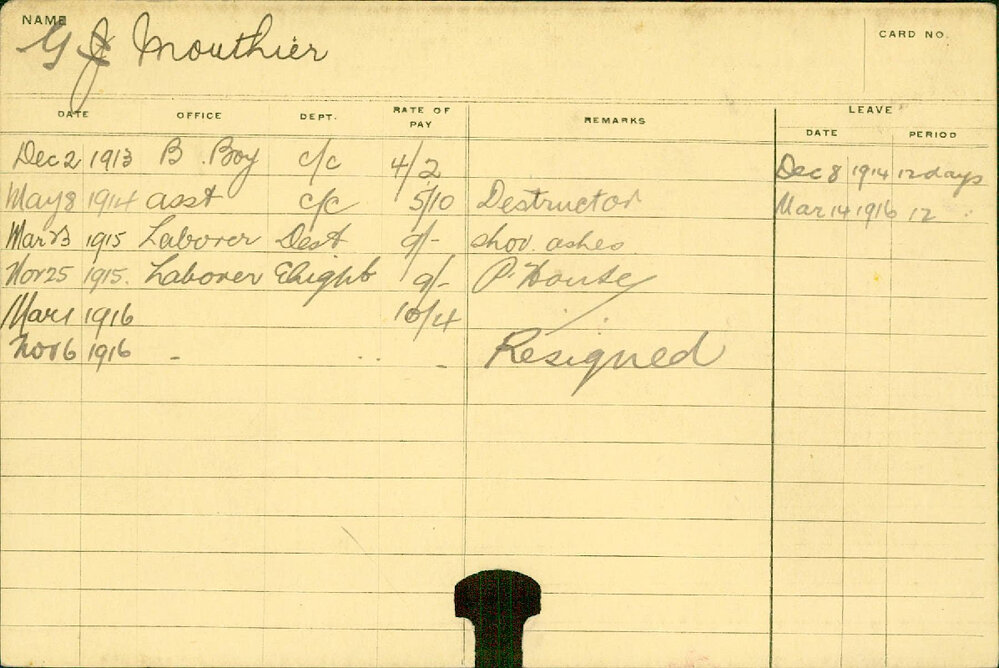 NAME
G J Mouthier
CARD NO.
DATE OFFICE DEPT. RATE OF PAY REMARKS LEAVE
DATE PERIOD
Dec 2 1913 B. Boy c/c 4/2 Dec 8 1914 12 days
May 8 1914 asst c/c 5/10 Destructor Mar 14 1916 12 "
Mar 23 1915 Laborer Dest 9/- shov. ashes
Nov 25 1915. Laborer Elight 9/- P. House
Mar 1 1916 10/4
Nov 6 1916 - - Resigned